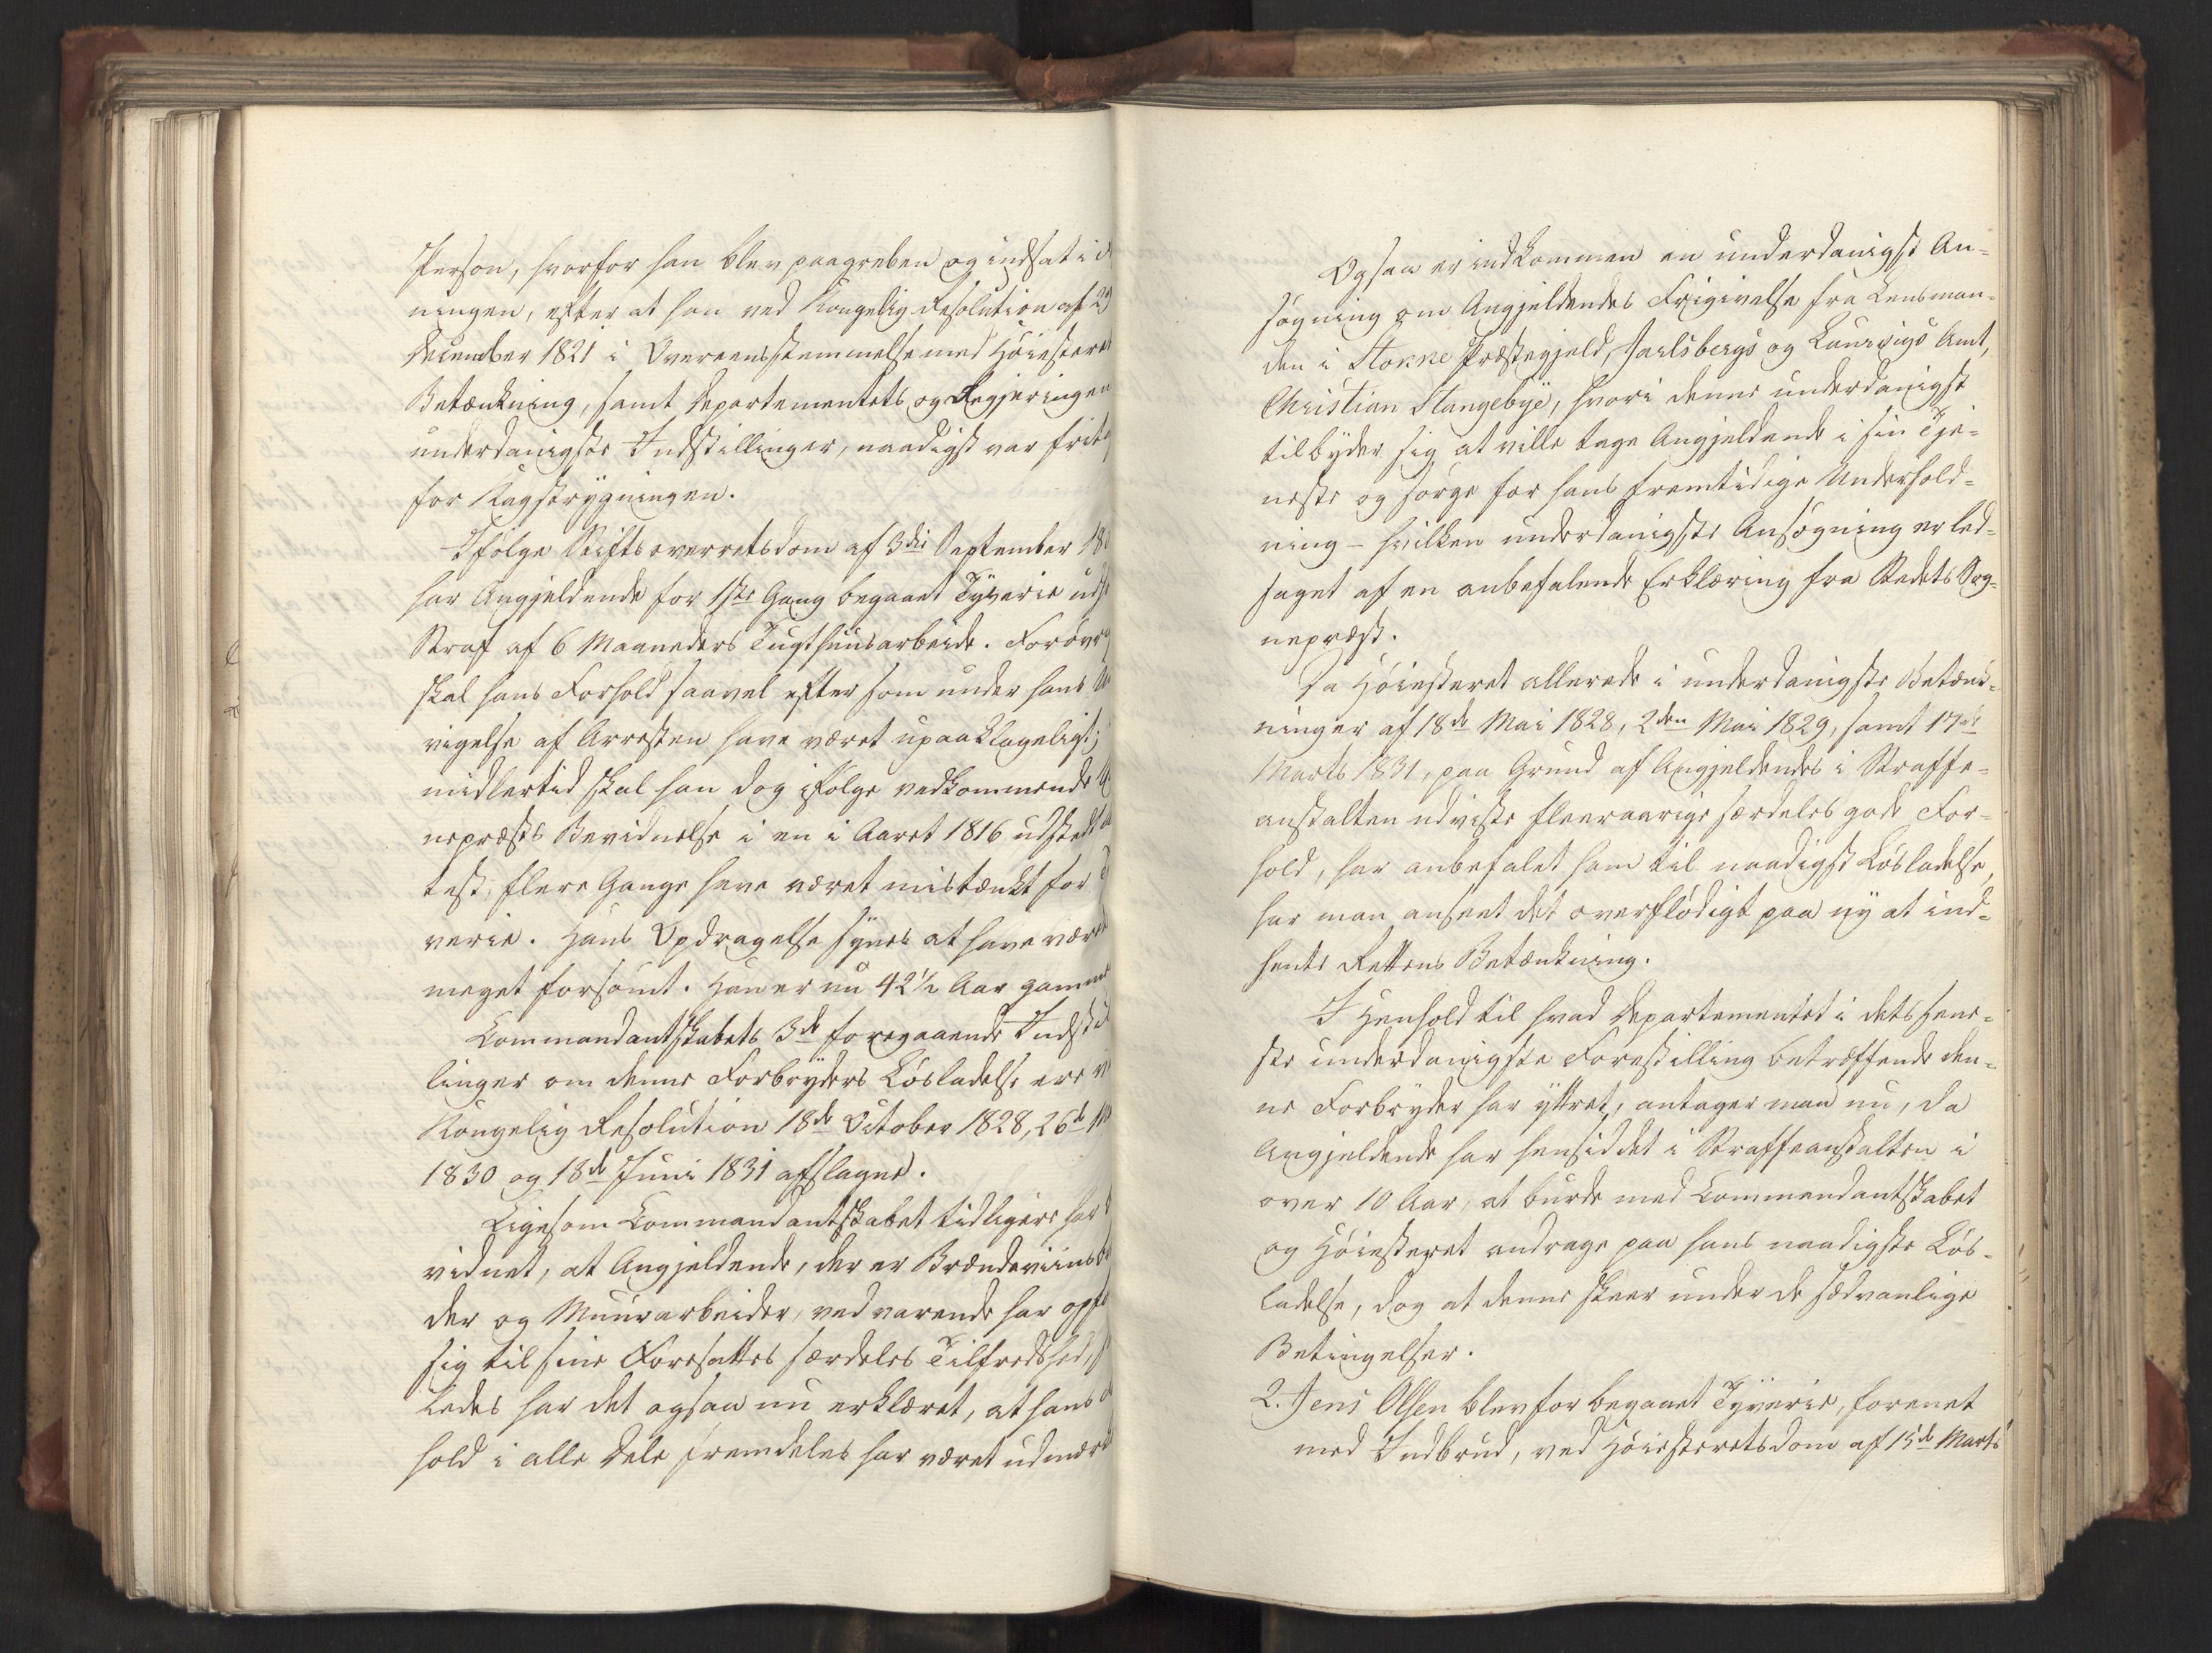 Person, hvorfor han blev paagreben og indsat i
ningen, efter at han ved Kongelig Resolution af 29
December 1821 i Overeensstemmelse med Høiestere
Betænkning, samt Departementets og Regjeringen
underdanigste Indstillinger, naadigst var frit
for Kagstrygningen.
Ifølge Stiftsoverretsdom af 3die September 18
har Angjeldende for 1ste Gang begaaet Tyverie uds
Straf af 6 Maaneders Tugthuusarbeide. Forøvr
skal hans Forhold saavel efter som under hans
vigelse af Arresten have været upaaklageligt;
midlertid skal han dog ifølge vedkommende
nepræsts Bevidnelse i en i Aaret 1816 udstedt
test, flere Gange have været mistænkt for
verie. Hans Opdragelse synes at have være
meget forsømt. Han er nu 42½ Aar gamm
Commandantskabets 3de foregaaende Indstil
linger om denne Forbryders Løsladelse ere v
Kongelig Resolution 18de October 1828, 26de
1830 og 18de Juni 1831 afslagne.
Ligesom Commandantskabet tidligere har
vidnet, at Angjeldende, der er Brændeviins
der og Muurarbeider, vedvarende har opf
sig til sine Foresattes særdeles Tilfredshed, s
ledes har det ogsaa nu erklæret, at hans
hold i alle Dele fremdeles har været udmærk
Ogsaa er indkommen en underdanigst An-
søgning om Angjeldendes Frigivelse fra Lensman-
den i Stokke Præstegjeld, Jarlsbergs og Laurvigs Amt,
Christian Stangebye, hvori denne underdanigst
tilbyder sig at ville tage Angjeldende i sin Tje-
neste og sørge for hans fremtidige Underhold-
ning – hvilken underdanigste Ansøgning er led-
saget af en anbefalende Erklæring fra Stedets Sog-
nepræst.
Da Høiesteret allerede i underdanigste Betænk-
ninger af 18de Mai 1828, 2den Mai 1829, samt 17de
Marts 1831, paa Grund af Angjeldendes i Straffe-
anstalten udviste fleeraarige særdeles gode For-
hold, har anbefalet ham til naadigst Løsladelse,
har man anseet det overflødigt paa ny at ind-
hente Rettens Betænkning.
I Henhold til hvad Departementet i dets sene-
ste underdanigste Forestilling betræffende den-
ne Forbryder har yttret, antager man nu, da
Angjeldende har hensiddet i Straffeanstalten i
over 10 Aar, at burde med Commandantskabet
og Høiesteret andrage paa hans naadigste Løs-
ladelse, dog at denne skeer under de sædvanlige
Betingelser.
2. Jens Olsen blev for begaaet Tyverie, forenet
med Indbrud, ved Høiesteretsdom af 15de Marts